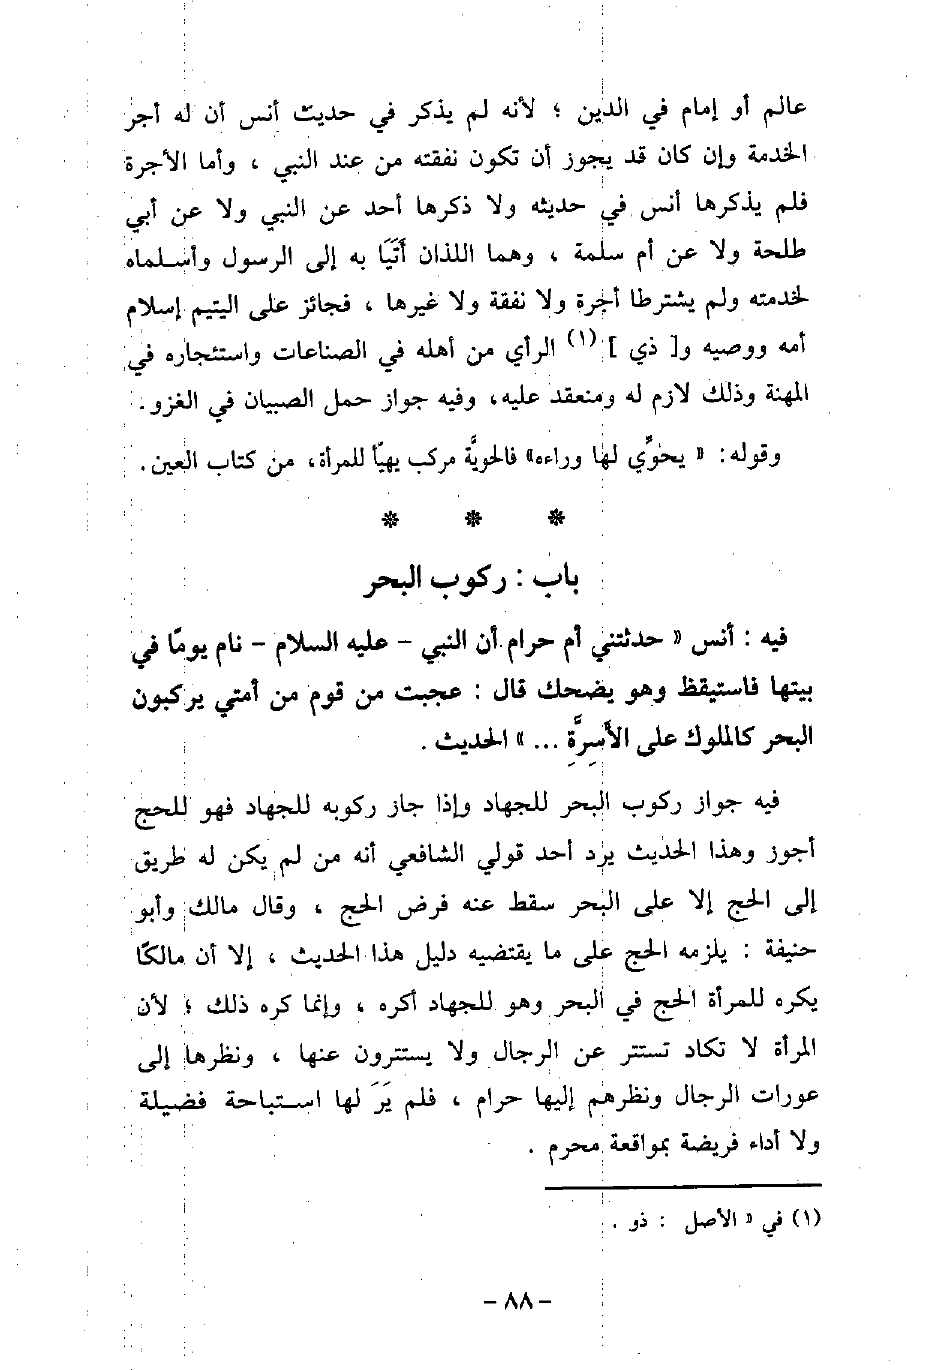 عالم أو إمام في الدين ؛ لأنه لم يذكر في حديث أنس أن له أجر
الخدمة وإن كان قد يجوز أن تكون نفقته من عند النبي ، وأما الأجرة
فلم يذكرها أنس في حديثه ولا ذكرها أحد عن النبي ولا عن أبي
طلحة ولا عن أم سلمة ، وهما اللذان أَتَيَا به إلى الرسول وأسلماه
لخدمته ولم يشترطا أجرة ولا نفقة ولا غيرها ، فجائز على اليتيم إسلام
أمه ووصيه و[ ذي ] (١) الرأي من أهله في الصناعات واستئجاره في
المهنة وذلك لازم له ومنعقد عليه، وفيه جواز حمل الصبيان في الغزو .
وقوله: « يحوِّي لها وراءه» فالحويَّة مركب يهيّأ للمرأة، من كتاب العين .
* * *
باب : ركوب البحر
فيه : أنس « حدثتني أم حرام أن النبي - عليه السلام - نام يومًا في
بيتها فاستيقظ وهو يضحك قال : عجبت من قوم من أمتي يركبون
البحر كالملوك على الأَسِرَّةِ ... » الحديث .
فيه جواز ركوب البحر للجهاد وإذا جاز ركوبه للجهاد فهو للحج
أجوز وهذا الحديث يرد أحد قولي الشافعي أنه من لم يكن له طريق
إلى الحج إلا على البحر سقط عنه فرض الحج ، وقال مالك وأبو
حنيفة : يلزمه الحج على ما يقتضيه دليل هذا الحديث ، إلا أن مالكًا
يكره للمرأة الحج في البحر وهو للجهاد أكره ، وإنما كره ذلك ؛ لأن
المرأة لا تكاد تستتر عن الرجال ولا يستترون عنها ، ونظرها إلى
عورات الرجال ونظرهم إليها حرام ، فلم يَرَ لها استباحة فضيلة
ولا أداء فريضة بمواقعة محرم .
(١) في « الأصل : ذو .
- ٨٨ -